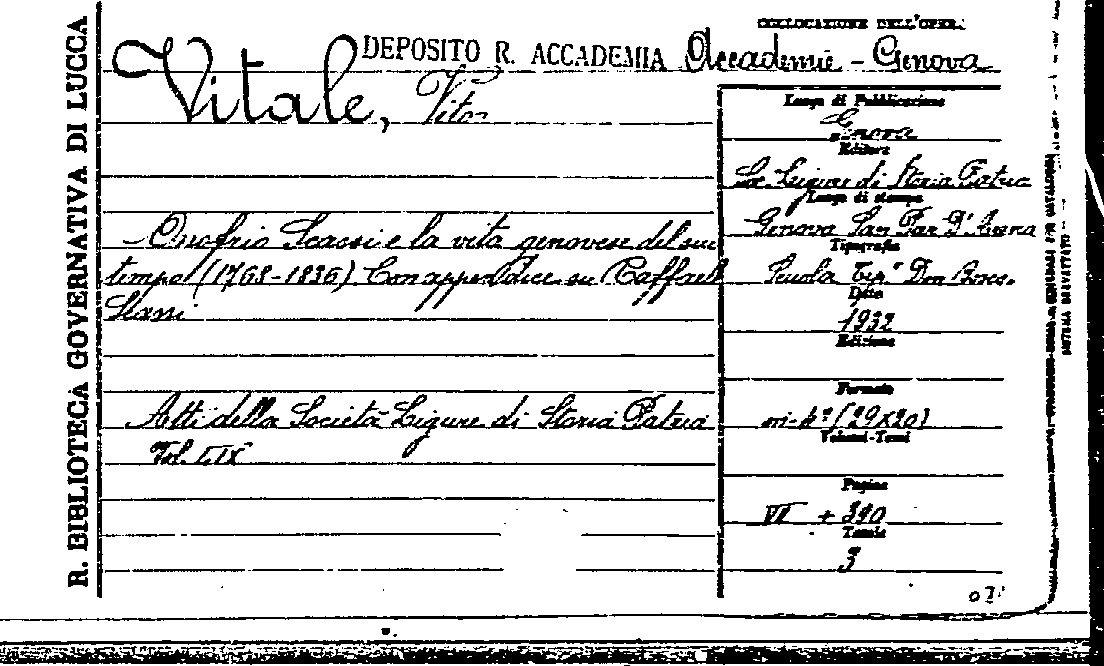 R. BIBLIOTECA GOVERNATIVA DI LUCCA
COLLOCAZIONE DELL'OPERA
DEPOSITO R. ACCADEMIA Accademie - Genova
Vitale, Vito
Luogo di Pubblicazione
Genova
Editore
Soc. Ligure di Storia Patria
Luogo di stampa
- Onofrio Scassi e la vita genovese del suo
Genova San Pier D'Arena
Tipografia
tempo (1768-1836) Con appendice su Raffaele
Scuola Tip. Don Bosco.
Data
Scassi
1932
Edizione
Formato
Atti della Società Ligure di Storia Patria
in-4° (29x20)
Volumi-Tomi
Vol. LIX
Pagine
VII + 390
Tavole
3